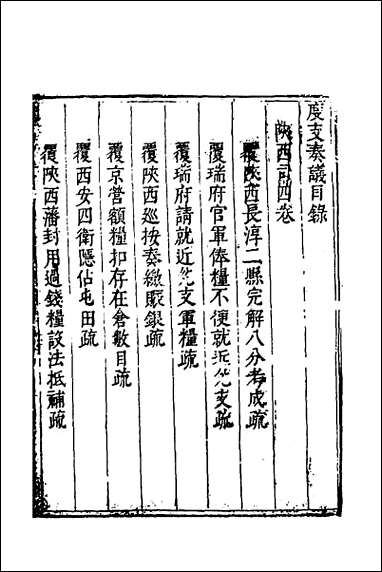 度支奏議目錄
陝西司四卷
覆陝西長淳二縣完解八分考成疏
覆瑞府官軍俸糧不便就近兊支疏
覆瑞府請就近兊支軍糧疏
覆陝西巡按奏繳賑銀疏
覆京營額糧扣存在倉數目疏
覆西安四衛隱佔屯田疏
覆陝西藩封用過錢糧設法抵補疏